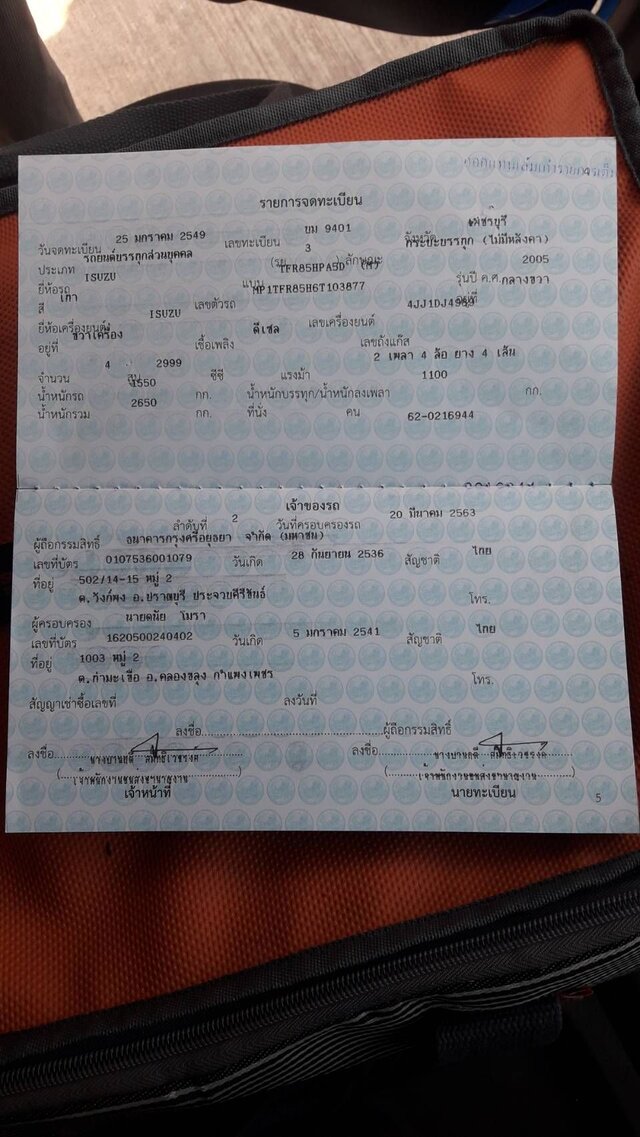 รายการจดทะเบียน
วันจดทะเบียน 25 มกราคม 2549 เลขทะเบียน ขม 9401 จังหวัด เพชรบุรี
ประเภท รถยนต์บรรทุกส่วนบุคคล (รย 3 ) ลักษณะ กระบะบรรทุก (ไม่มีหลังคา)
ยี่ห้อรถ ISUZU แบบ TFR85HPA5D รุ่นปี ค.ศ. 2005
สี เทา เลขตัวรถ MP1TFR85H6T103877 อยู่ที่ กลางขวา
ยี่ห้อเครื่องยนต์ ISUZU เลขเครื่องยนต์
อยู่ที่ ขวาเครื่อง เชื้อเพลิง ดีเซล เลขถังแก๊ส
จำนวน 4 สูบ 2999 ซีซี แรงม้า 2 เพลา 4 ล้อ ยาง 4 เส้น
น้ำหนักรถ 1550 กก. น้ำหนักบรรทุก/น้ำหนักลงเพลา 1100 กก.
น้ำหนักรวม 2650 กก. ที่นั่ง คน 62-0216944
เจ้าของรถ
ลำดับที่ 2 วันที่ครอบครองรถ 20 มีนาคม 2563
ผู้ถือกรรมสิทธิ์ ธนาคารกรุงศรีอยุธยา จำกัด (มหาชน)
เลขที่บัตร 0107536001079 วันเกิด 28 กันยายน 2536 สัญชาติ ไทย
ที่อยู่ 502/14-15 หมู่ 2
ต.วังก์พง อ.ปราณบุรี ประจวบคีรีขันธ์ โทร.
ผู้ครอบครอง นายดนัย โมรา
เลขที่บัตร 1620500240402 วันเกิด 5 มกราคม 2541 สัญชาติ ไทย
ที่อยู่ 1003 หมู่ 2
ต. อ.คลองขลุง กำแพงเพชร โทร.
สัญญาเช่าซื้อเลขที่ ลงวันที่
ลงชื่อ ผู้ถือกรรมสิทธิ์
ลงชื่อ ลงชื่อ
เจ้าหน้าที่ นายทะเบียน
5